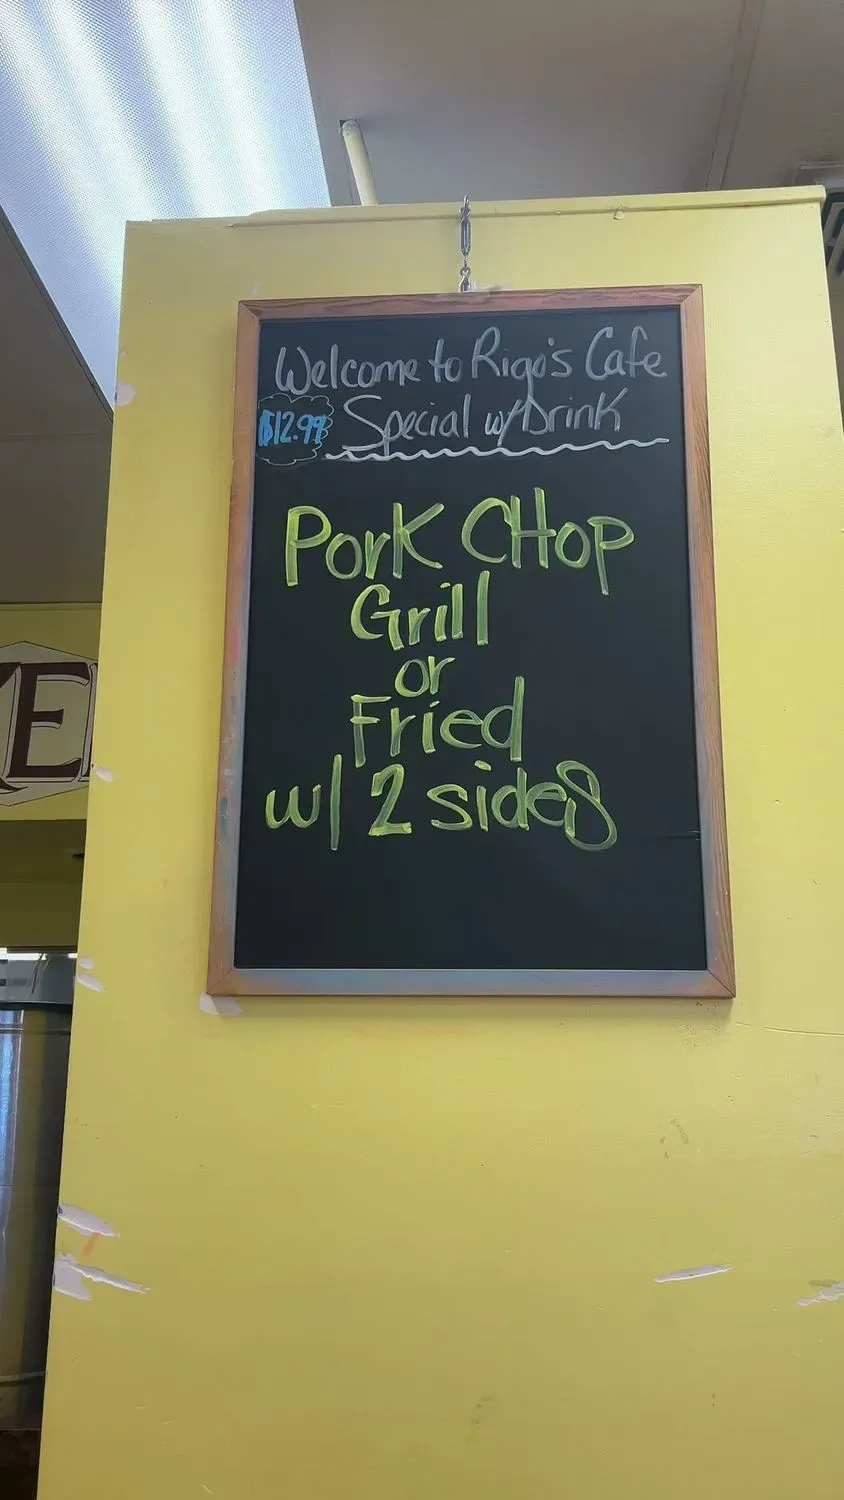 Welcome to Rigo's Cafe
$12.99 Special w/Drink
Pork CHop
Grill
or
Fried
w/ 2 sides